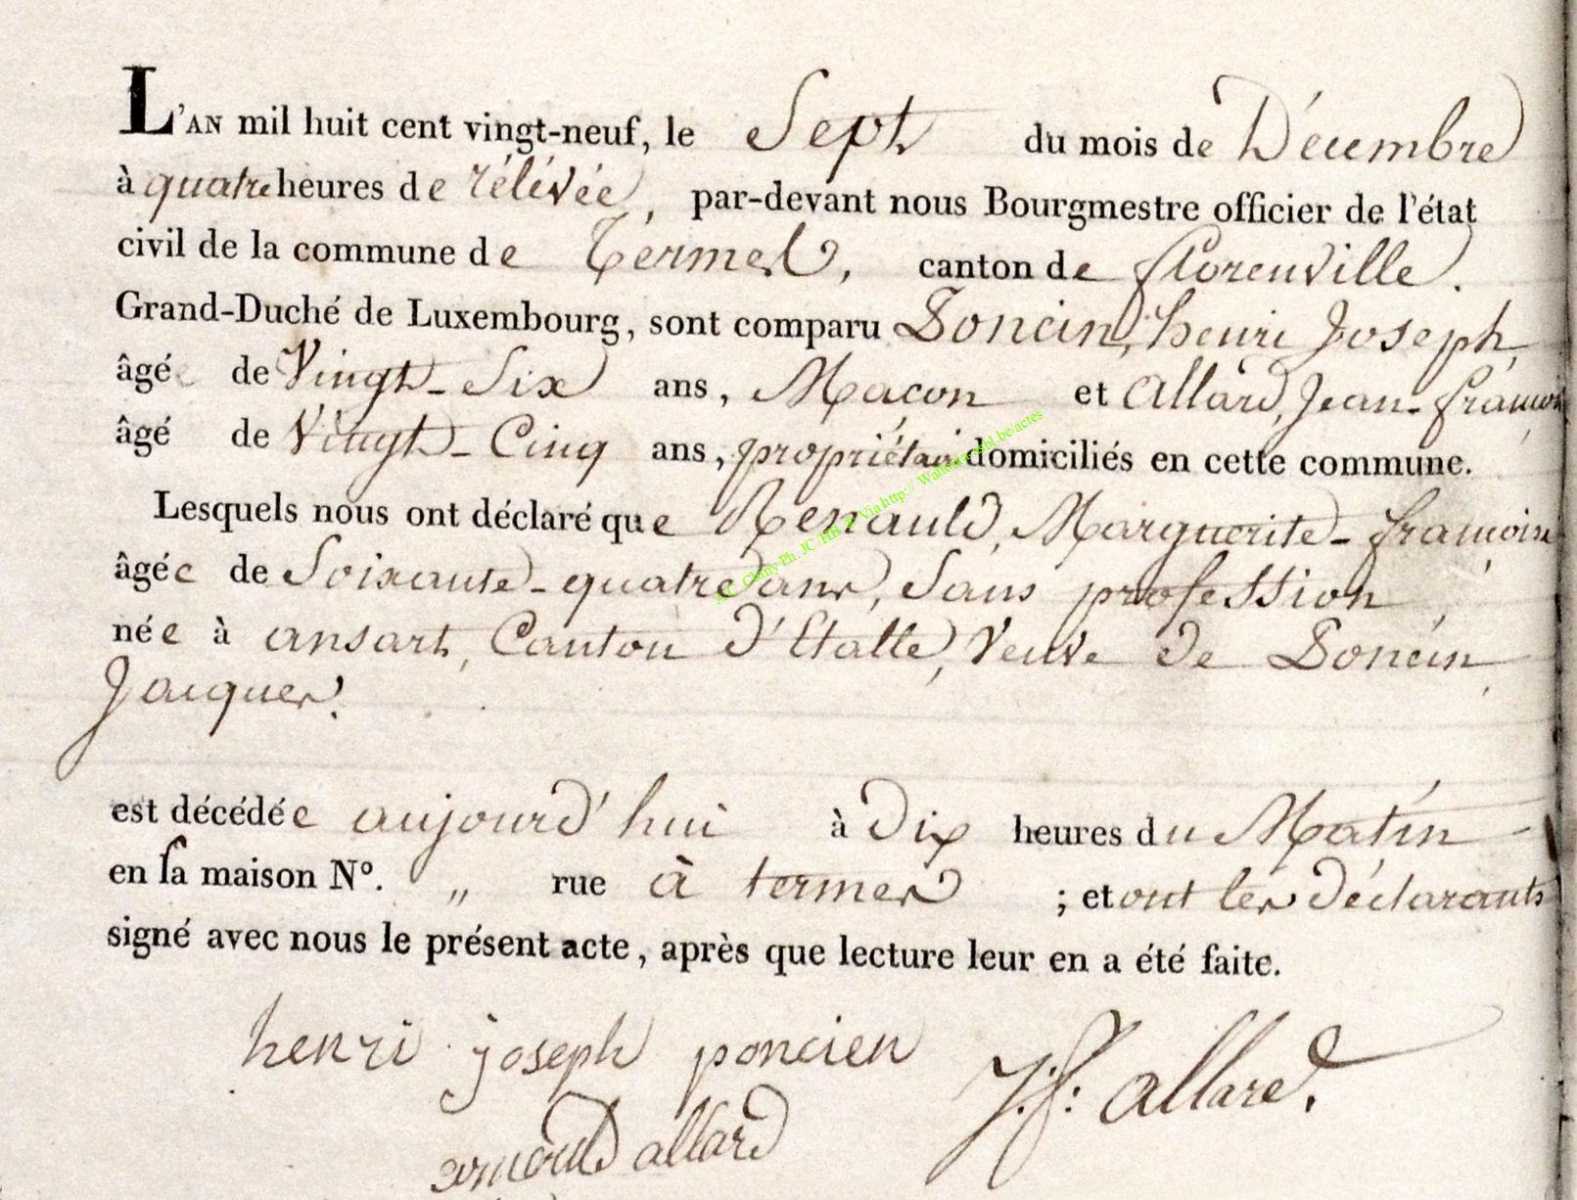 L'AN mil huit cent vingt-neuf, le Sept du mois de Décembre
à quatre heures de rélévée, par-devant nous Bourgmestre officier de l'état
civil de la commune de Termes, canton de florenville.
Grand-Duché de Luxembourg, sont comparu Poncin, henri Joseph,
âgé de Vingt-Six ans, Maçon et Allard, Jean-françois
âgé de Vingt-Cinq ans, propriétair domiciliés en cette commune.
Lesquels nous ont déclaré que Renauld, Marguerite-françoise
âgée de Soixante-quatre ans, Sans profession,
née à ansart, Canton d'Etalle, Veuve de Poncin
Jacques.
est décédée aujourd'hui à dix heures du Matin
en sa maison N°. „ rue à termes ; et ont les déclarants
signé avec nous le présent acte, après que lecture leur en a été faite.
henri joseph poncien J.f: allard.
arnould allard